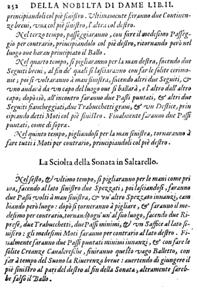 252 DELLA NOBILTA DI DAME LIB. II.
principiandoli col piè sinistro. Ultimamente faranno due Continenze
breui, una col piè sinistro, l'altra col destro.
Nel terzo tempo, passeggiaranno, con fare il medesimo Passeggio
per contrario, principiandolo col piè destro, ritornando però nel
luogo oue hanno principiato il Ballo.
Nel quarto tempo, si pigliaranno per la man destra, facendo due
Seguiti breui, al fin de' quali si lasciaranno con far le solite cerimonie;
tornaranno a pigliar la man sinistra, facendo altri due Seguiti,
uno andarà da un capo del luogo oue si ballarà, e l'altro dall'altro
capo, dapoi, all'incontro faranno due Passi puntati, & altri due
Seguiti fiancheggiati, due Trabuchetti graui, & un Destice, principiando
detti Moti col piè sinistro. Finalmente faranno due Passi
puntati, come di sopra.
Nel quinto tempo, pigliandosi per la man sinistra, tornaranno à
fare tutti i Moti per contrario, principiandoli col piè destro.
La Sciolta della Sonata in Saltarello.
Nel sesto, & ultimo tempo, si pigliaranno per le mani come prima,
facendo al lato sinistro due Spezzati, poi lasciandosi, faranno
due Passi volti à man sinistra, & un' altro Spezzato innanzi, cambiando
luogo: dopò si tornaranno à pigliare, & faranno il medesimo
per contrario, tornandosi ogn'un' al suo luogo, facendo due Riprese,
due Trabuchetti, due Passi minimi, & un Zoffice al lato sinistro:
gli medesimi Moti faranno per contrario al lato destro. Finalmente
faranno due Passi puntati minimi innanzi, & con fare le
solite Creanze Caualleresche, finiranno questo vago Balletto, con
far à tempo del Suono la Riuerenza breue: auertendo di giungere il
piè sinistro al pari del destro al fin della Sonata, altramente sarebbe
falso il Ballo.